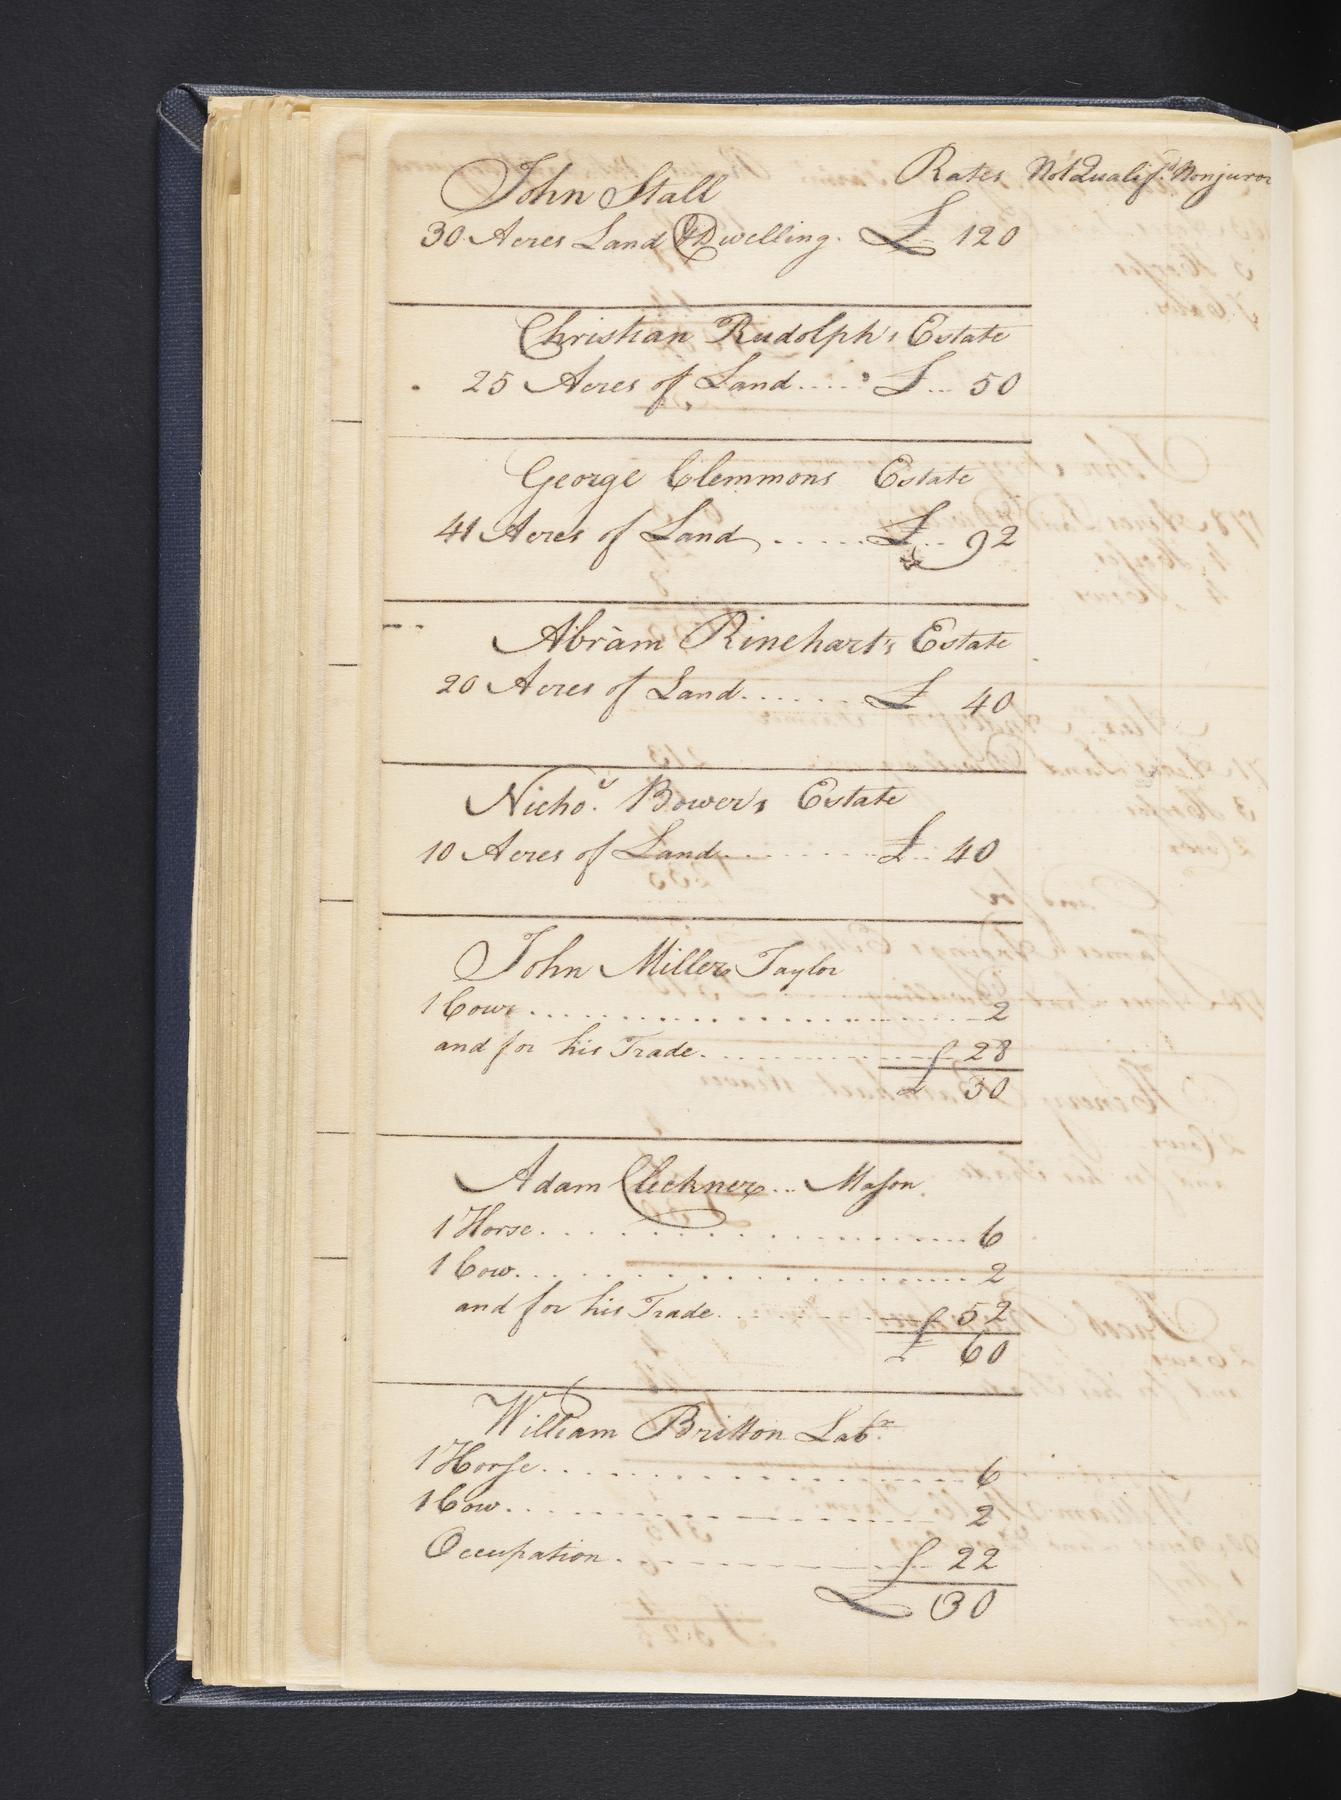 John Stall Rates Not Qualifd. Nonjuror
30 Acres Land & Dwelling. £ 120
Christian Rudolph's Estate
25 Acres of Land..... £... 50
George Clemmons Estate
41 Acres of Land...... £... 92
Abram Rinehart's Estate
20 Acres of Land...... £ 40
Nicho.s Bower's Estate
10 Acres of Land......... £.. 40
John Miller Taylor
1 Cow................ 2
and for his Trade............ £ 28
£ 30
Adam Cleckner... Mason
1 Horse................ 6
1 Cow................ 2
and for his Trade............ £ 52
£ 60
William Britton Labr.
1 Horse................ 6
1 Cow................ 2
Occupation............ £ 22
£ 30